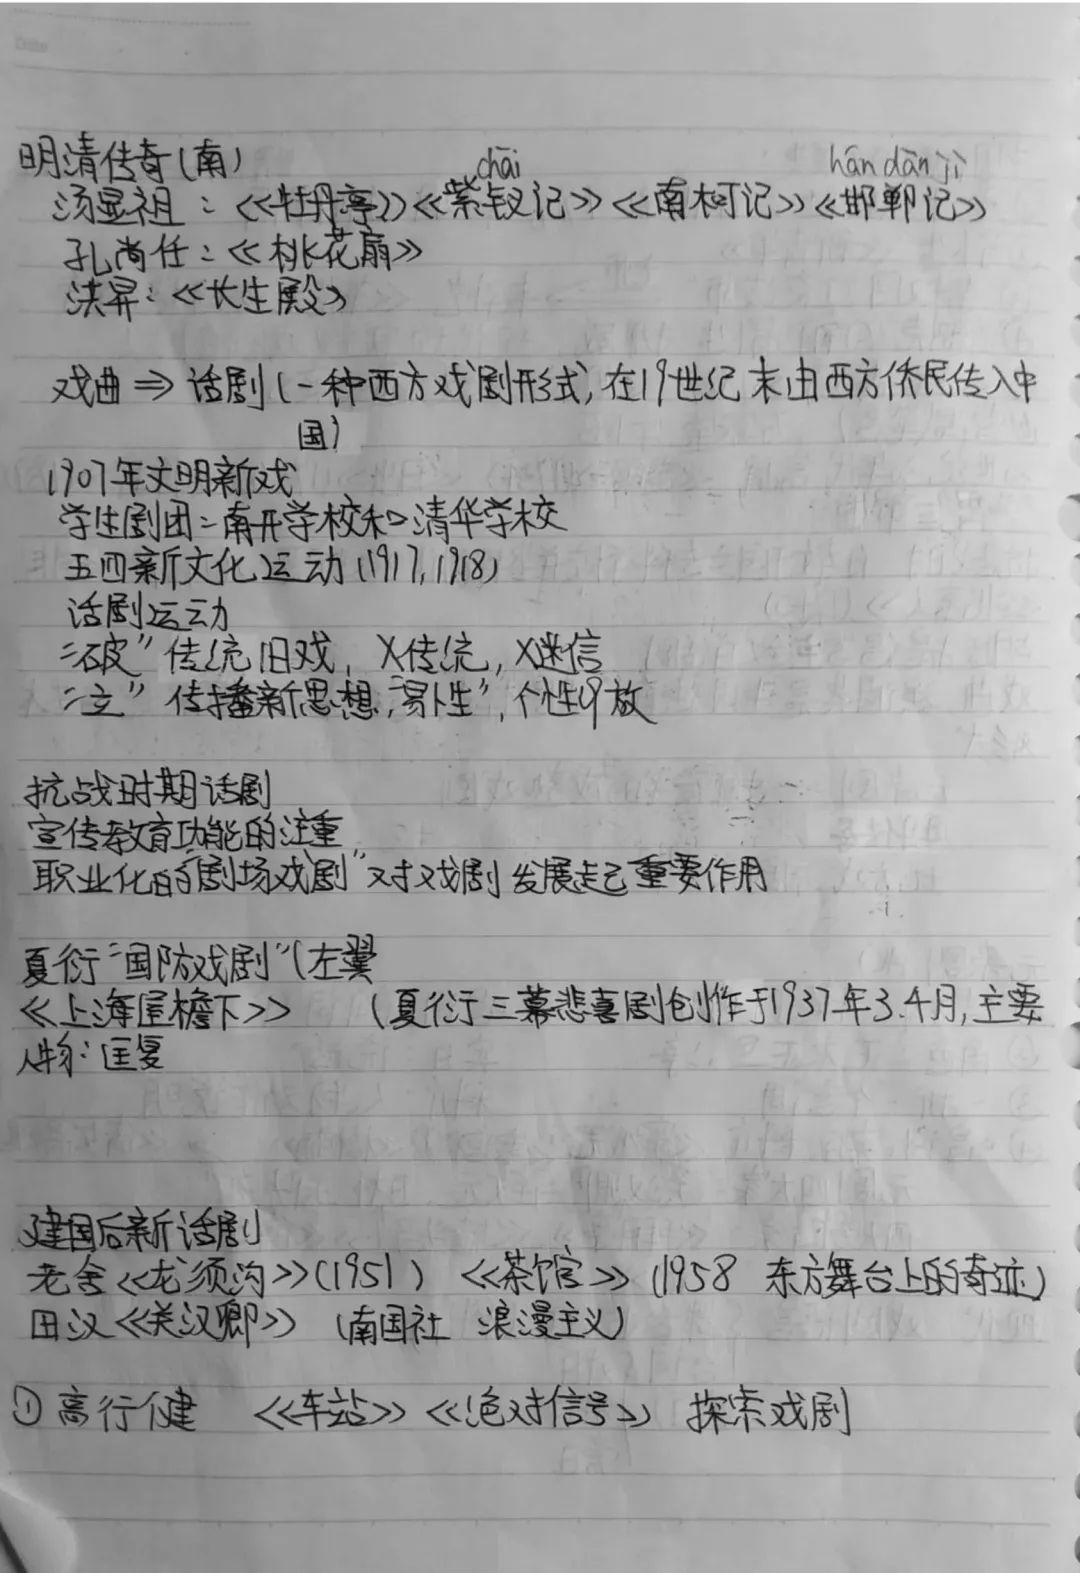 明清传奇(南)
chāi hān dān jì
汤显祖：《牡丹亭》《紫钗记》《南柯记》《邯郸记》
孔尚任：《桃花扇》
洪昇：《长生殿》
戏曲⇒话剧(一种西方戏剧形式，在19世纪末由西方侨民传入中
国)
1907年文明新戏
学生剧团：南开学校和清华学校
五四新文化运动(1917,1918)
话剧运动
“破”传统旧戏，X传统，X迷信
“立”传播新思想，“易卜生”，个性解放
抗战时期话剧
宣传教育功能的注重
职业化的“剧场戏剧”对戏剧发展起已重要作用
夏衍“国防戏剧”(左翼
《上海屋檐下》 (夏衍三幕悲喜剧创作于1937年3.4月,主要
人物：匡复
建国后新话剧
老舍《龙须沟》(1951) 《茶馆》(1958 东方舞台上的奇迹)
田汉《关汉卿》 (南国社 浪漫主义)
① 高行健 《车站》《绝对信号》 探索戏剧